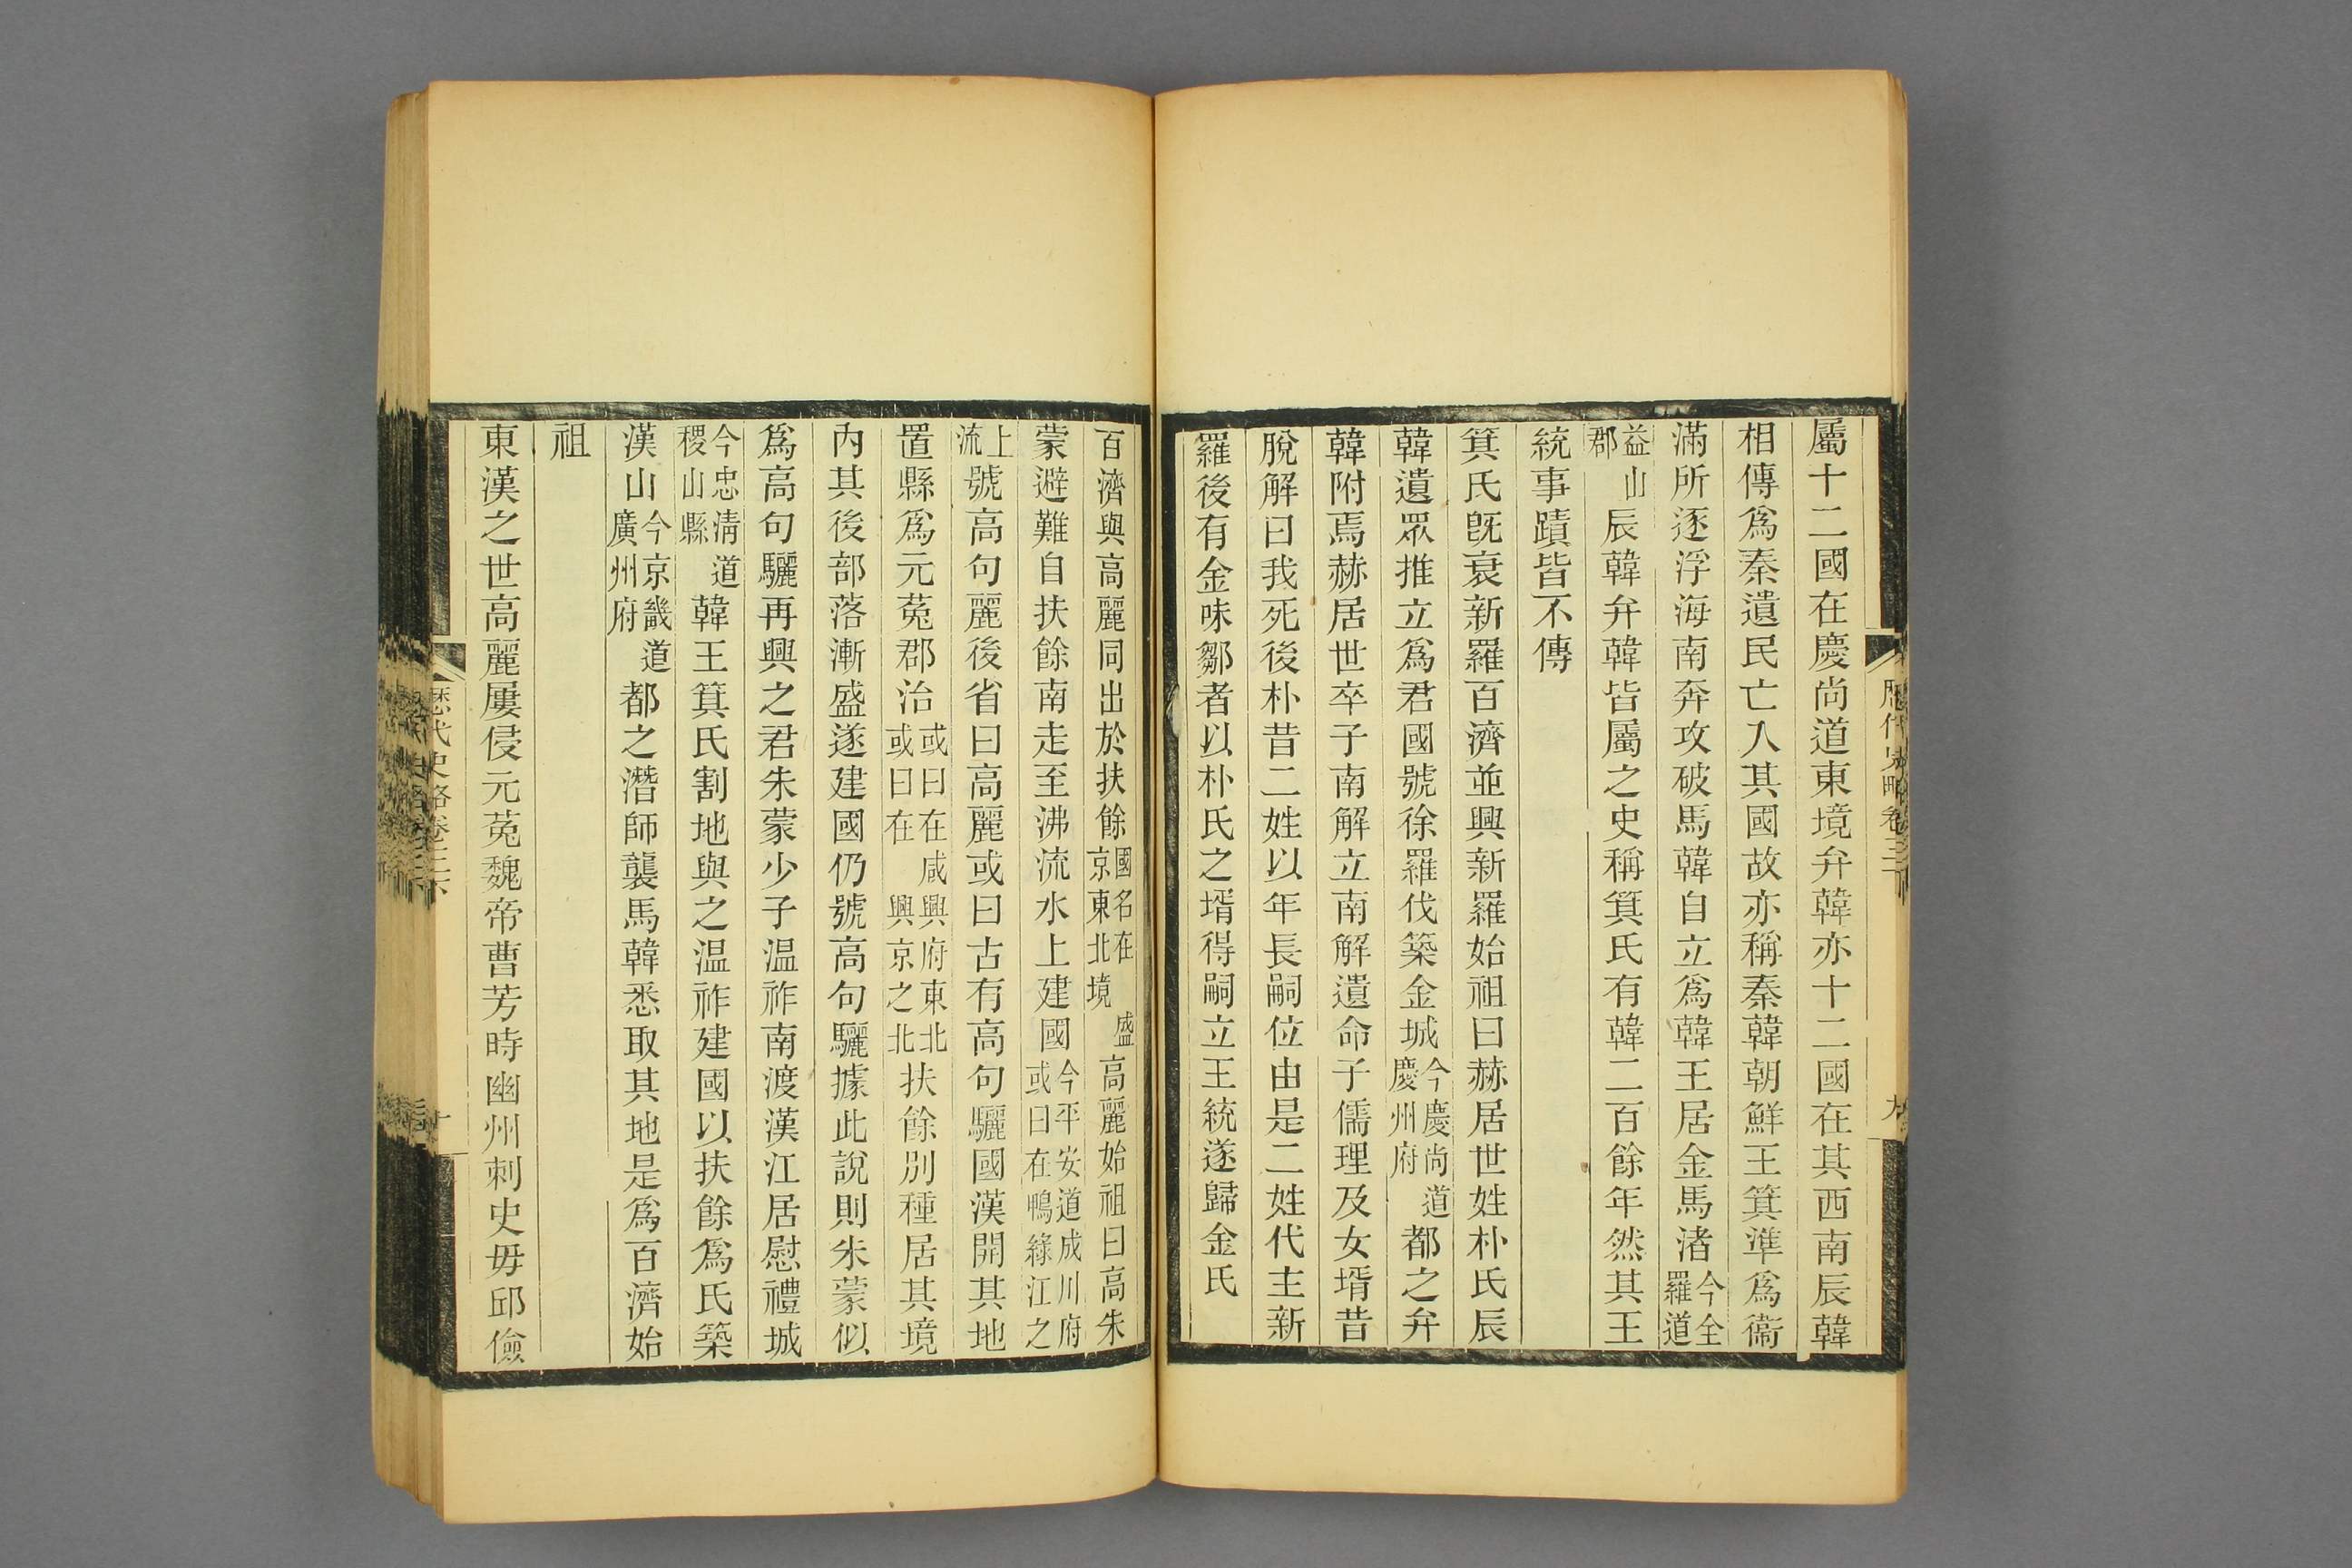 屬十二國在慶尚道東境弁韓亦十二國在其西南辰韓
相傳爲秦遺民亡入其國故亦稱秦韓朝鮮王箕準爲衞
滿所逐浮海南奔攻破馬韓自立爲韓王居金馬渚今全羅道
益山郡辰韓弁韓皆屬之史稱箕氏有韓二百餘年然其王
統事蹟皆不傳
箕氏旣衰新羅百濟並興新羅始祖曰赫居世姓朴氏辰
韓遺眾推立爲君國號徐羅伐築金城今慶尚道慶州府都之弁
韓附焉赫居世卒子南解立南解遺命子儒理及女壻昔
脫解曰我死後朴昔二姓以年長嗣位由是二姓代主新
羅後有金味鄒者以朴氏之壻得嗣立王統遂歸金氏
百濟與高麗同出於扶餘國名在盛京東北境高麗始祖曰高朱
蒙避難自扶餘南走至沸流水上建國今平安道成川府或曰在鴨綠江之
上流號高句麗後省曰高麗或曰古有高句驪國漢開其地
置縣爲元菟郡治或曰在咸興府東北或曰在興京之北扶餘別種居其境
內其後部落漸盛遂建國仍號高句驪據此說則朱蒙似
爲高句驪再興之君朱蒙少子温祚南渡漢江居慰禮城
今忠淸道稷山縣韓王箕氏割地與之温祚建國以扶餘爲氏築
漢山今京畿道廣州府都之潛師襲馬韓悉取其地是爲百濟始
祖
東漢之世高麗屢侵元菟魏帝曹芳時幽州刺史毋邱儉